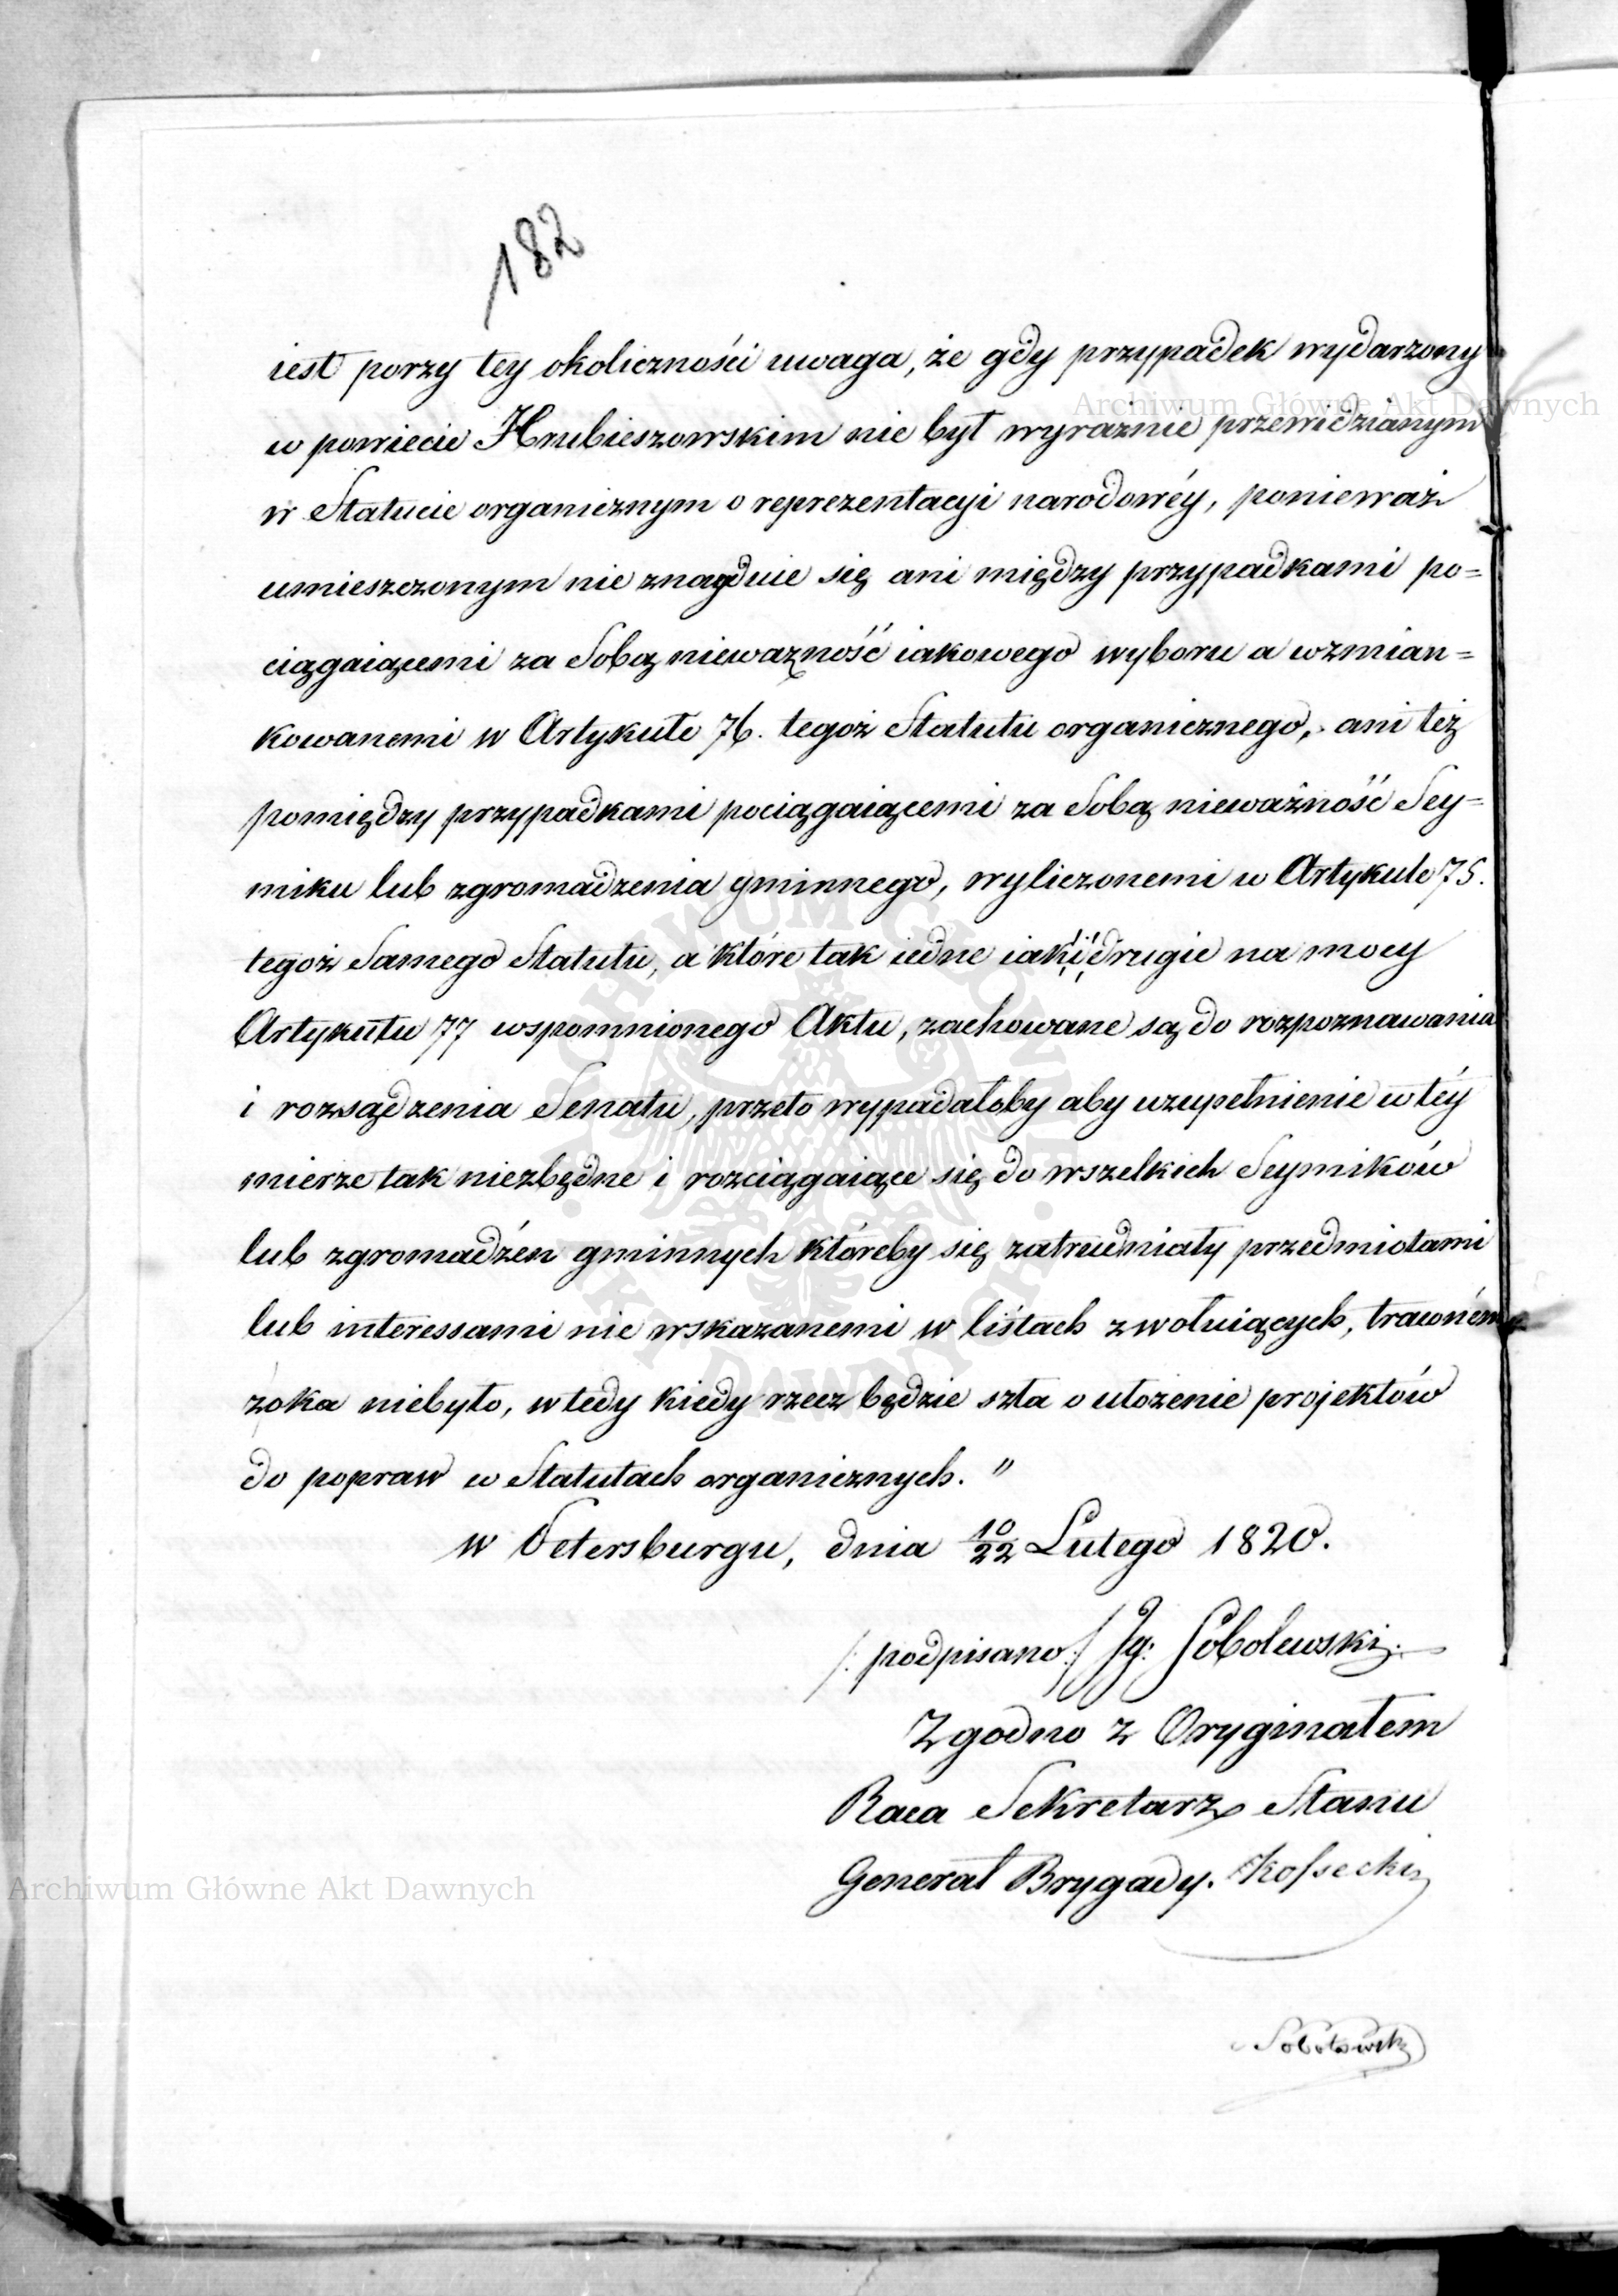 182
iest porzy tey okoliczności uwaga, że gdy przypadek wydarzony
w powiecie Hrubieszowskim nie był wyraznie przewidzianym
w Statucie organicznym o reprezentacyi narodowéy, ponieważ
umieszczonym nie znayduie się ani między przypadkami po=
ciągaiącemi za Sobą nieważność iakowego wyboru a wzmian=
kowanemi w Artykule 76. tegoż Statutu organicznego, ani też
pomiędzy przypadkami pociągaiącemi za Sobą nieważność Sey=
miku lub zgromadzenia gminnego, wyliczonemi w Artykule 75.
tegoż Samego Statutu, a które tak iedne iak i drugie na mocy
Artykułu 77 wspomnionego Aktu, zachowane są do rozpoznawania
i rozsądzenia Senatu, przeto wypadałoby aby uzupełnienie w téy
mierze tak niezbędne i rozciągaiące się do wszelkich Seymików
lub zgromadzén gminnych któreby się zatrudniały przedmiotami
lub interessami nie wskazanemi w listach zwołuiących, trawném
zoka niebyło, wtedy kiedy rzecz będzie szła o ułożenie projektów
do popraw w Statutach organicznych. "
w Petersburgu, dnia 10/22 Lutego 1820.
/: podpisano :/ Ig: Sobolewski.
Zgodno z Oryginałem
Raca Sekretarz Stanu
Generał Brygady. Kossecki
Sobolewski
Archiwum Główne Akt Dawnych
Archiwum Główne Akt Dawnych
ARCHIWUM GŁÓWNE AKT DAWNYCH